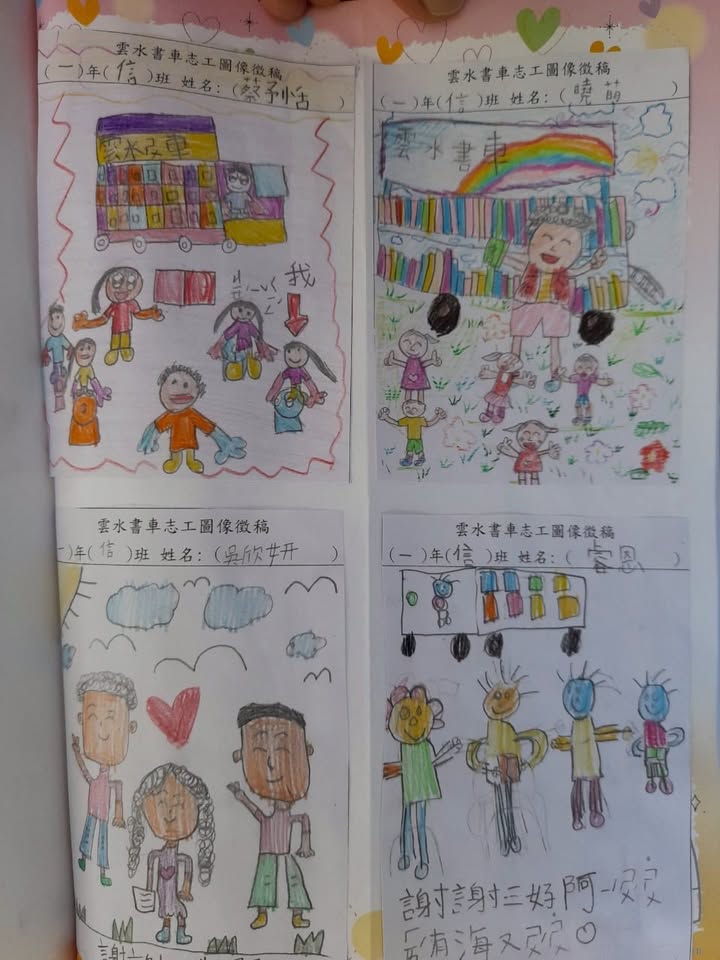 雲水書車志工圖像徵稿
(一)年(信)班 姓名:(蔡予恬)
雲水書車
我
雲水書車志工圖像徵稿
(一)年(信)班 姓名:(曉萌)
雲水書車
雲水書車志工圖像徵稿
一)年(信)班 姓名:(吳欣妍)
雲水書車志工圖像徵稿
(一)年(信)班 姓名:(睿恩)
謝謝三好阿
海